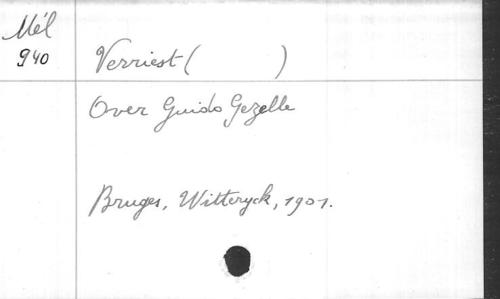 Mél
940
Verriest ( )
Over Guido Gezelle
Bruges, Witteryck, 1901.